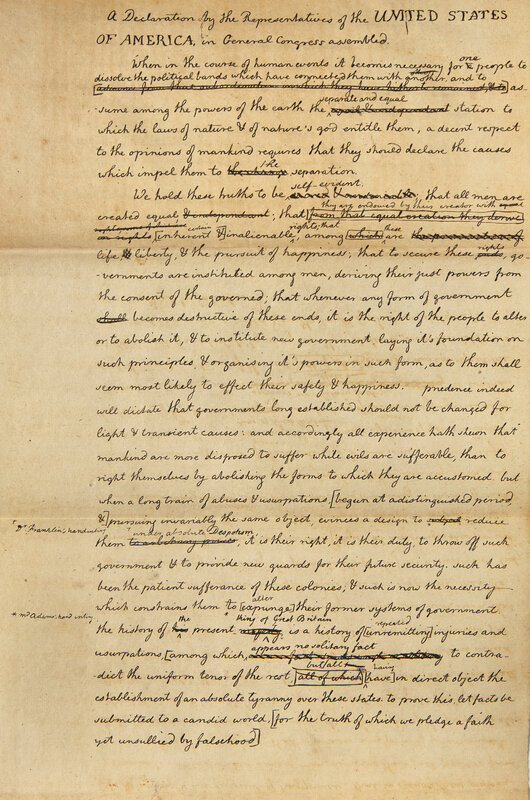 A Declaration by the Representatives of the UNITED STATES
OF AMERICA, in General Congress assembled.
When in the course of human events it becomes necessary for one people to
dissolve the political bands which have connected them with another, and to
as-
separate and equal
sume among the powers of the earth the station to
which the laws of nature & of nature's god entitle them, a decent respect
to the opinions of mankind requires that they should declare the causes
the
which impel them to the change separation.
self-evident,
We hold these truths to be sacred & undeniable; that all men are
they are endowed by their creator with
created equal & independant; that from that equal creation they derive
rights; that these
[inherent &] inalienable, among which are the preservation of
life, & liberty, & the pursuit of happiness; that to secure these rights, go-
vernments are instituted among men, deriving their just powers from
the consent of the governed; that whenever any form of government
shall becomes destructive of these ends, it is the right of the people to alter
or to abolish it, & to institute new government, laying it's foundation on
such principles & organising it's powers in such form, as to them shall
seem most likely to effect their safety & happiness. prudence indeed
will dictate that governments long established should not be changed for
light & transient causes: and accordingly all experience hath shewn that
mankind are more disposed to suffer while evils are sufferable, than to
right themselves by abolishing the forms to which they are accustomed. but
when a long train of abuses & usurpations [begun at a distinguished period,
&] pursuing invariably the same object, evinces a design to reduce
* Dr. Franklin's handwriting
under absolute Despotism
them to arbitrary power, it is their right, it is their duty, to throw off such
government & to provide new guards for their future security. such has
been the patient sufferance of these colonies; & such is now the necessity
alter
which constrains them to [expunge] their former systems of government.
* Mr. Adams' handwriting
the * King of Great Britain repeated
the history of his present is a history of [unremitting] injuries and
appears no solitary fact
usurpations, [among which, to contra-
but all having
dict the uniform tenor of the rest, all of which [have] in direct object the
establishment of an absolute tyranny over these states. to prove this, let facts be
submitted to a candid world, [for the truth of which we pledge a faith
yet unsullied by falsehood]